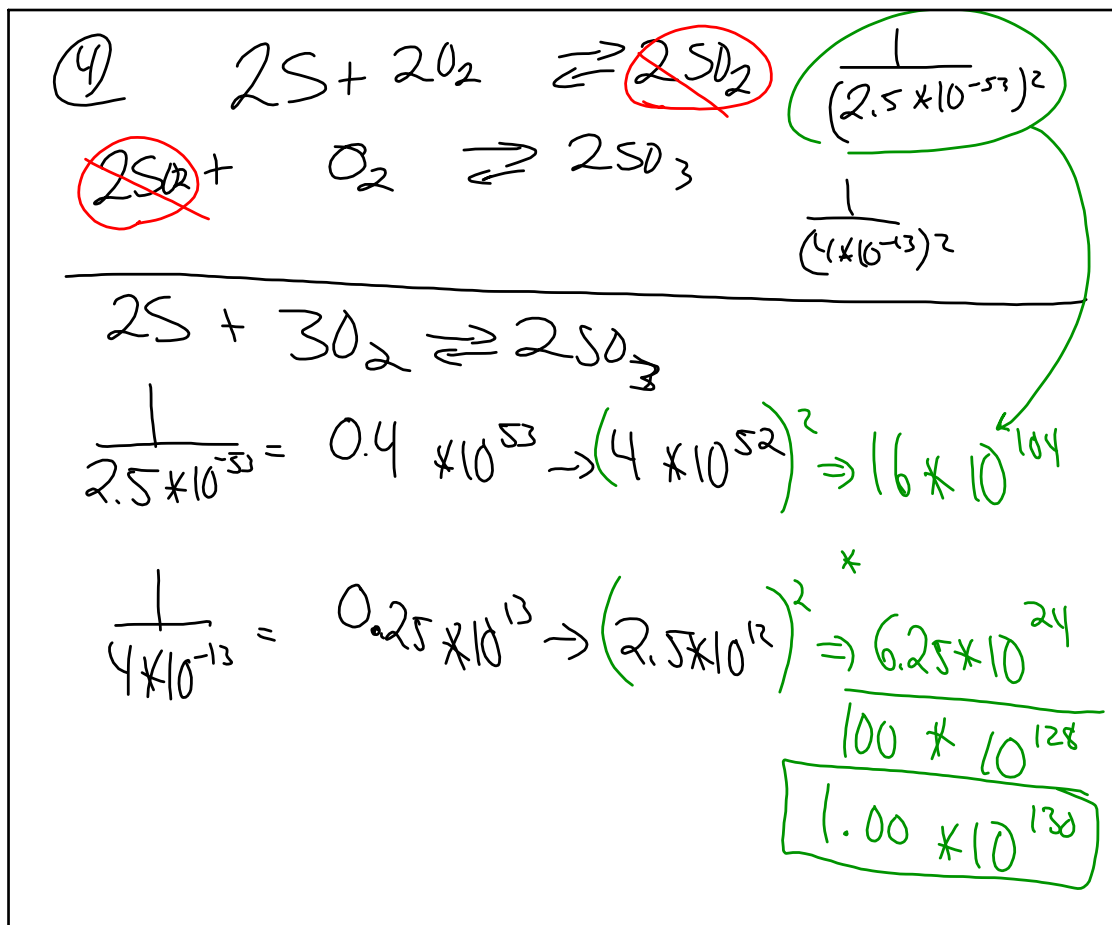 ④ 2S + 2O₂ ⇌ 2SO₂ 1/(2.5*10⁻⁵³)²
2SO₂ + O₂ ⇌ 2SO₃ 1/(4*10⁻¹³)²
2S + 3O₂ ⇌ 2SO₃
1/2.5*10⁻⁵³ = 0.4 *10⁵³ → (4 *10⁵²)² ⇒ 16 * 10¹⁰⁴
*
1/4*10⁻¹³ = 0.25*10¹³ → (2.5*10¹²)² ⇒ 6.25*10²⁴
100 * 10¹²⁸
1.00 *10¹³⁰